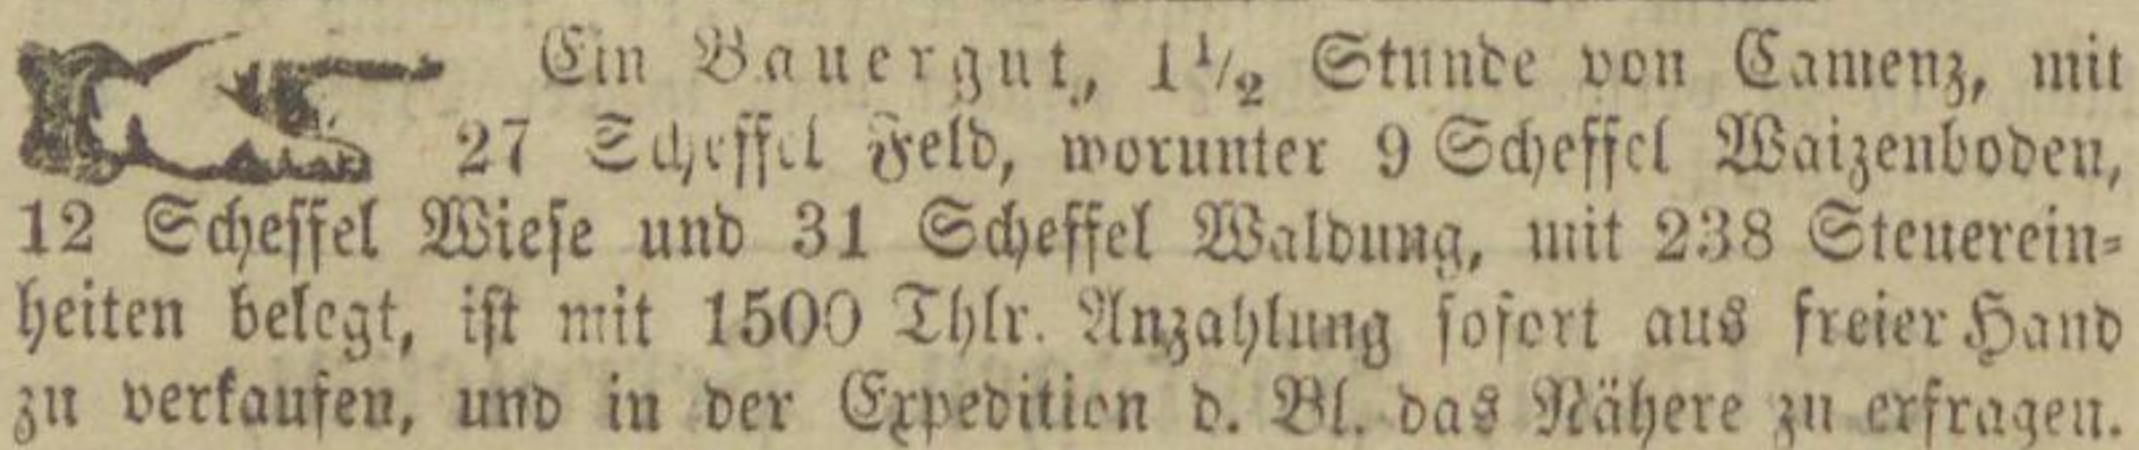 Ein Bauergut, 1 1/2 Stunde von Camenz, mit
27 Scheffel Feld, worunter 9 Scheffel Waizenboden,
12 Scheffel Wiese und 31 Scheffel Waldung, mit 238 Steuerein-
heiten belegt, ist mit 1500 Thlr. Anzahlung sofort aus freier Hand
zu verkaufen, und in der Expedition d. Bl. das Nähere zu erfragen.